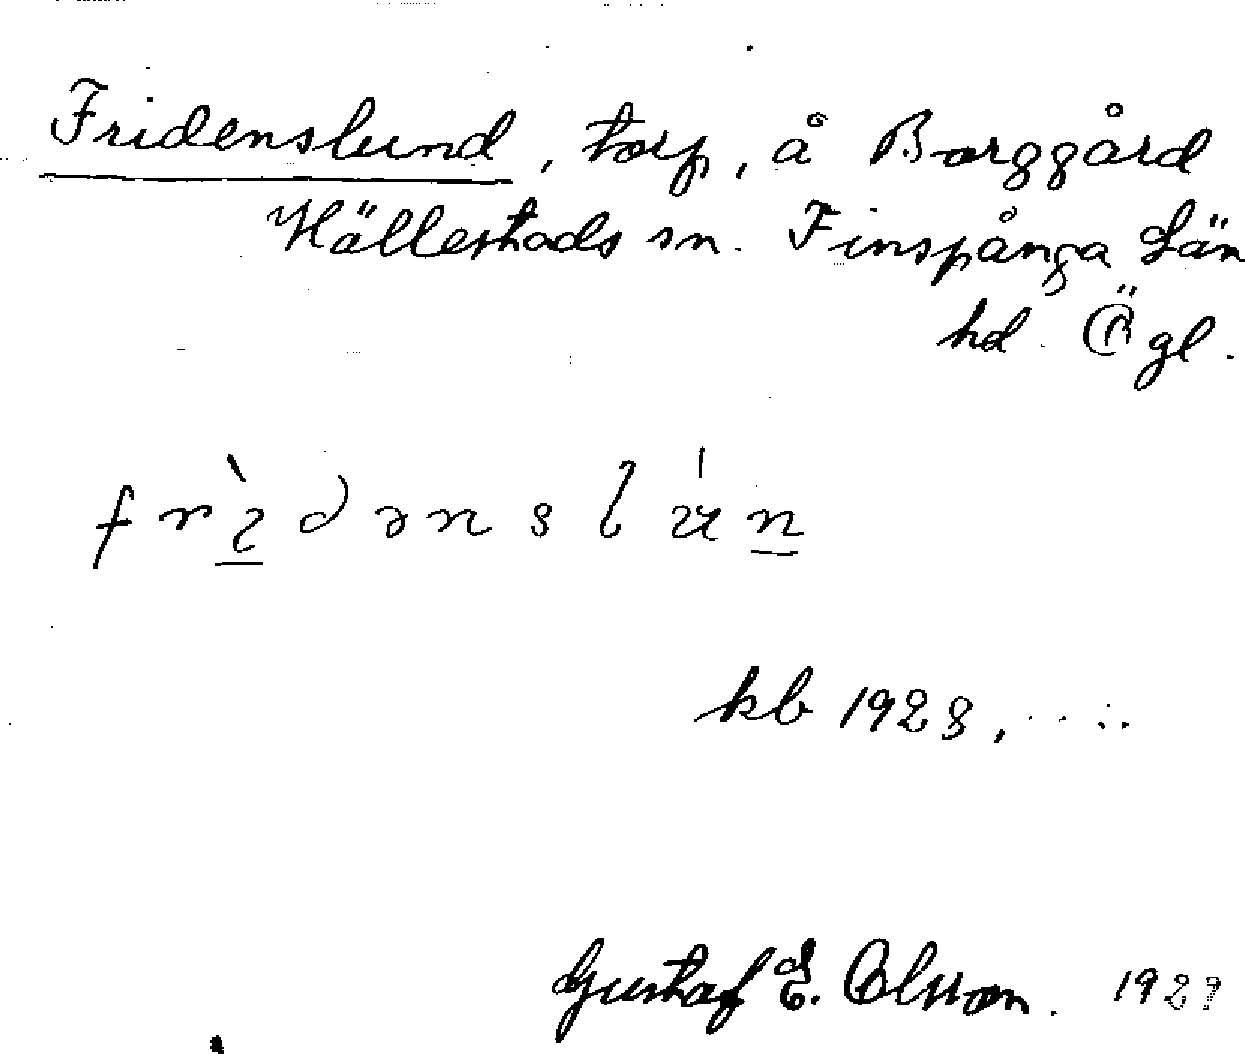 Fridenslund, torp, å Borggård
Hällestads sn. Finspånga Län
hd. Ögl.
frìdənslún
kb 1928,
Gustaf E. Olsson. 192